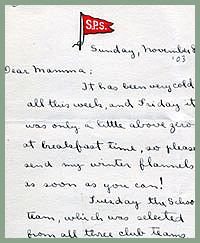 S.P.S.
Sunday, November 8
'03
Dear Mamma;
It has been very cold
all this week, and Friday it
was only a little above zero
at breakfast time, so please
send my winter flannels
as soon as you can!
Tuesday the School
team, which was selected
from all three club teams